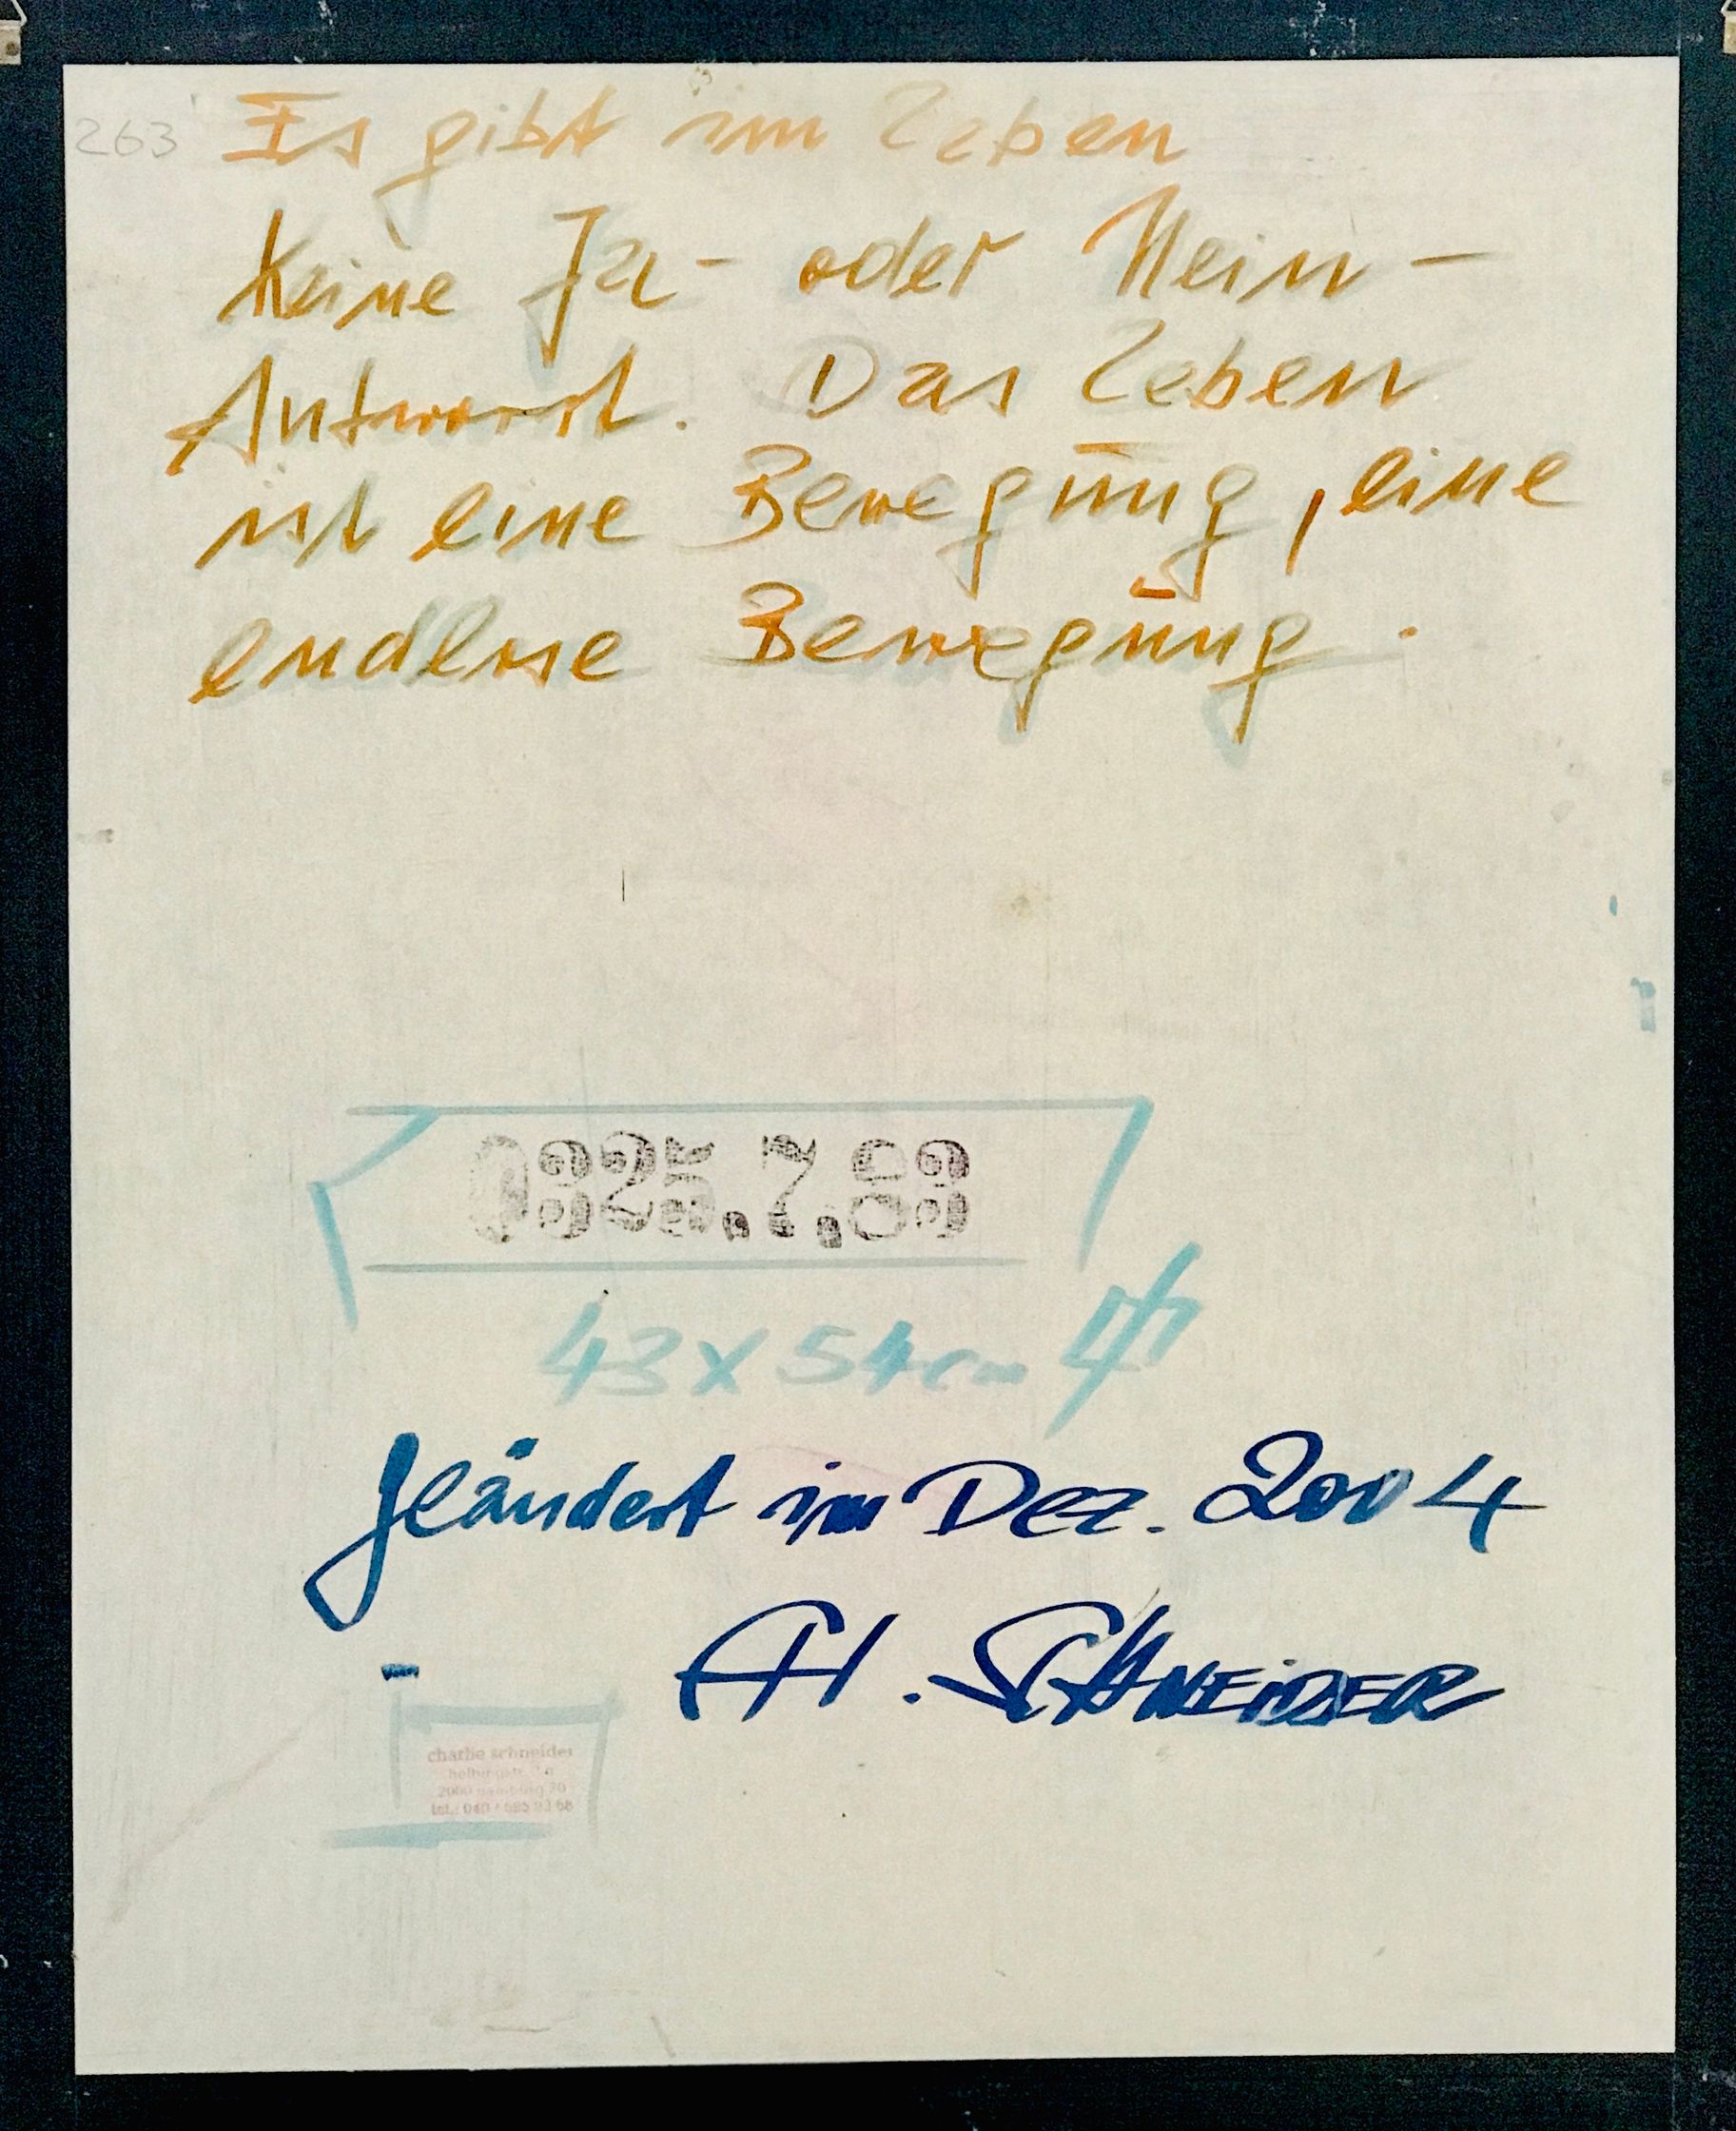 263
Es gibt im Leben
keine Ja- oder Nein-
Antwort. Das Leben
ist eine Bewegung, eine
endlose Bewegung.
0325.7.89
43 x 54 cm
geändert im Dez. 2004
CH. SCHNEIDER
charlie schneider
2000 hamburg 70
tel.: 040 / 695 93 68